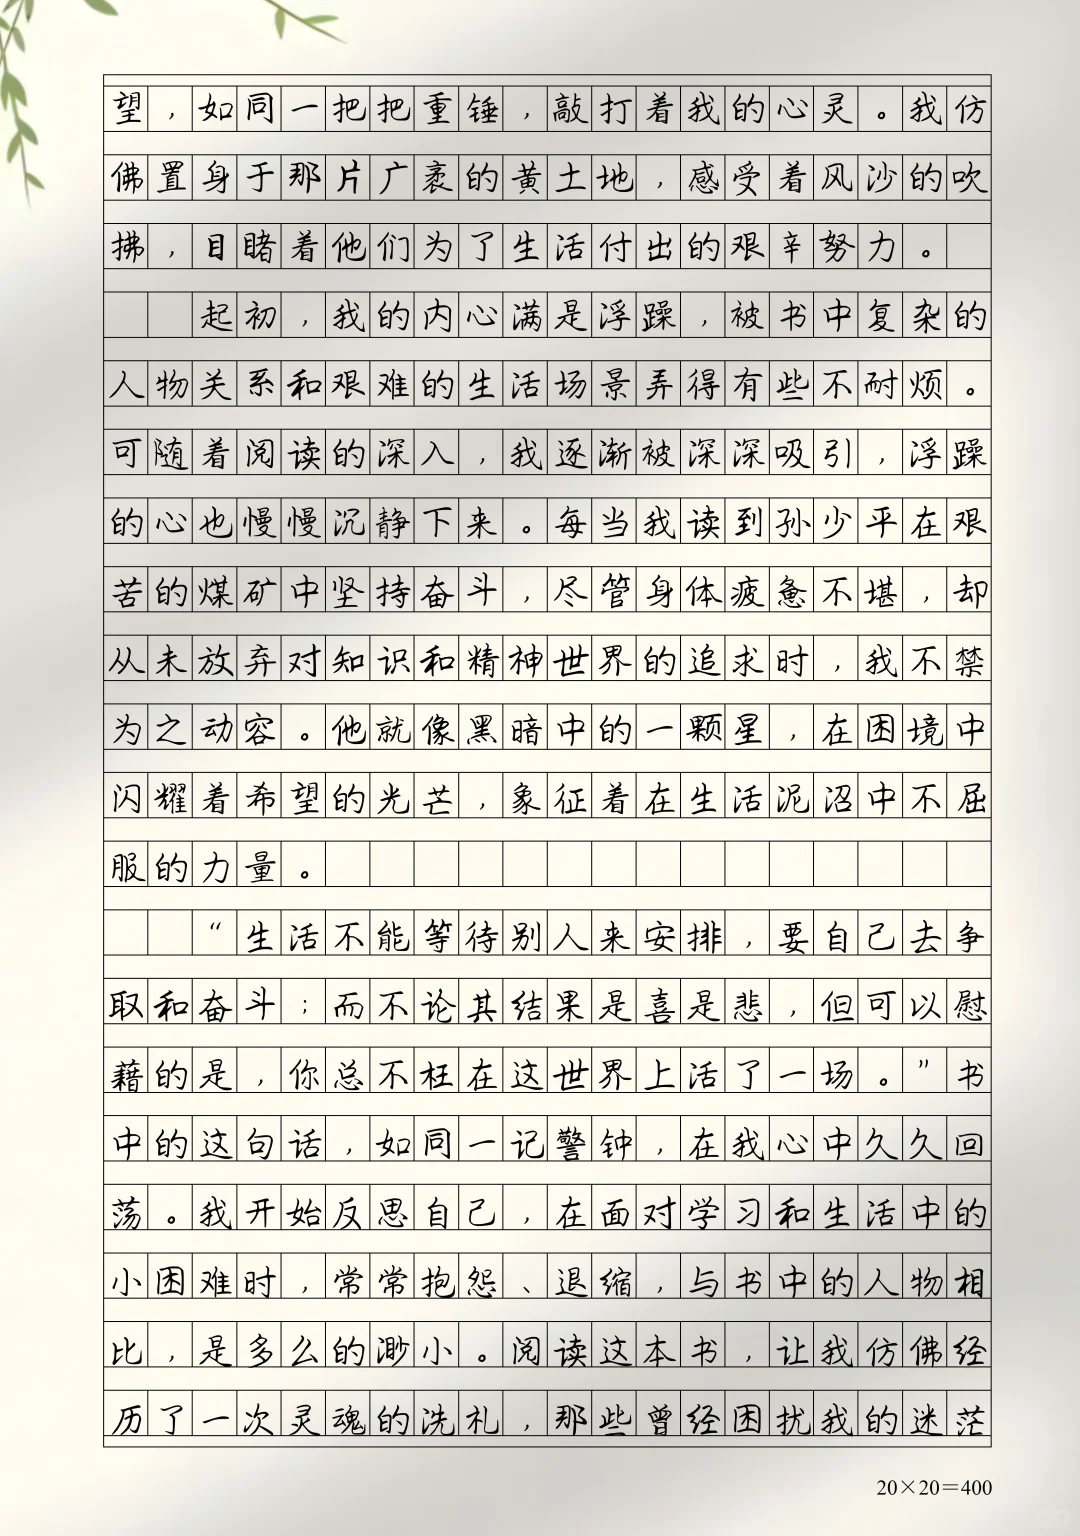 望，如同一把把重锤，敲打着我的心灵。我仿
佛置身于那片广袤的黄土地，感受着风沙的吹
拂，目睹着他们为了生活付出的艰辛努力。
起初，我的内心满是浮躁，被书中复杂的
人物关系和艰难的生活场景弄得有些不耐烦。
可随着阅读的深入，我逐渐被深深吸引，浮躁
的心也慢慢沉静下来。每当我读到孙少平在艰
苦的煤矿中坚持奋斗，尽管身体疲惫不堪，却
从未放弃对知识和精神世界的追求时，我不禁
为之动容。他就像黑暗中的一颗星，在困境中
闪耀着希望的光芒，象征着在生活泥沼中不屈
服的力量。
“生活不能等待别人来安排，要自己去争
取和奋斗；而不论其结果是喜是悲，但可以慰
藉的是，你总不枉在这世界上活了一场。”书
中的这句话，如同一记警钟，在我心中久久回
荡。我开始反思自己，在面对学习和生活中的
小困难时，常常抱怨、退缩，与书中的人物相
比，是多么的渺小。阅读这本书，让我仿佛经
历了一次灵魂的洗礼，那些曾经困扰我的迷茫
20×20＝400